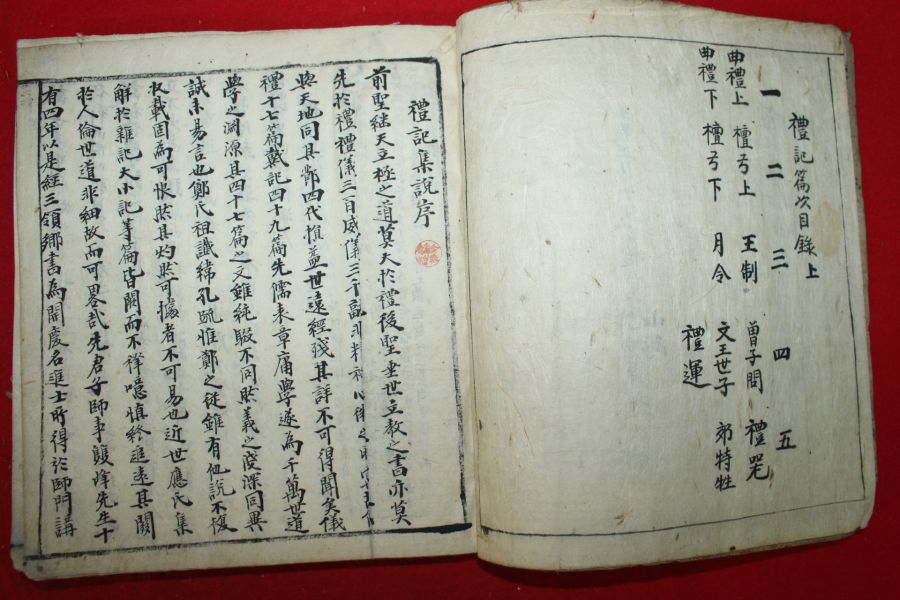 禮記篇次目錄上
一 二 三 四 五
曲禮上 檀弓上 王制 曾子問 禮器
曲禮下 檀弓下 月令 文王世子 郊特牲
禮運
禮記集說序
前聖繼天立極之道莫大於禮後聖垂世立教之書亦莫
先於禮禮儀三百威儀三千
與天地同其節四代損益世遠經殘其詳不可得聞矣儀
禮十七篇戴記四十九篇先儒表章庸學遂為千萬世道
學之淵源其四十七篇之文雖純駁不同然義之淺深同異
誠未易言也鄭氏祖讖緯孔疏惟鄭之從雖有他說不復
收載固為可恨然其灼然可據者不可易也近世應氏集
解於雜記大小記等篇皆闕而不釋噫慎終追遠其關
於人倫世道非細故而可畧哉先君子師事雙峰先生十
有四年以是經三領鄉書為開慶名進士所得於師門講